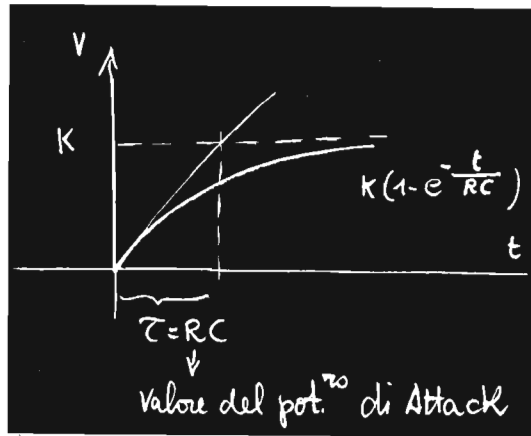 V
K
K(1-e^{-\frac{t}{RC}})
t
τ=RC
↓
Valore del pot.^{ro} di Attack